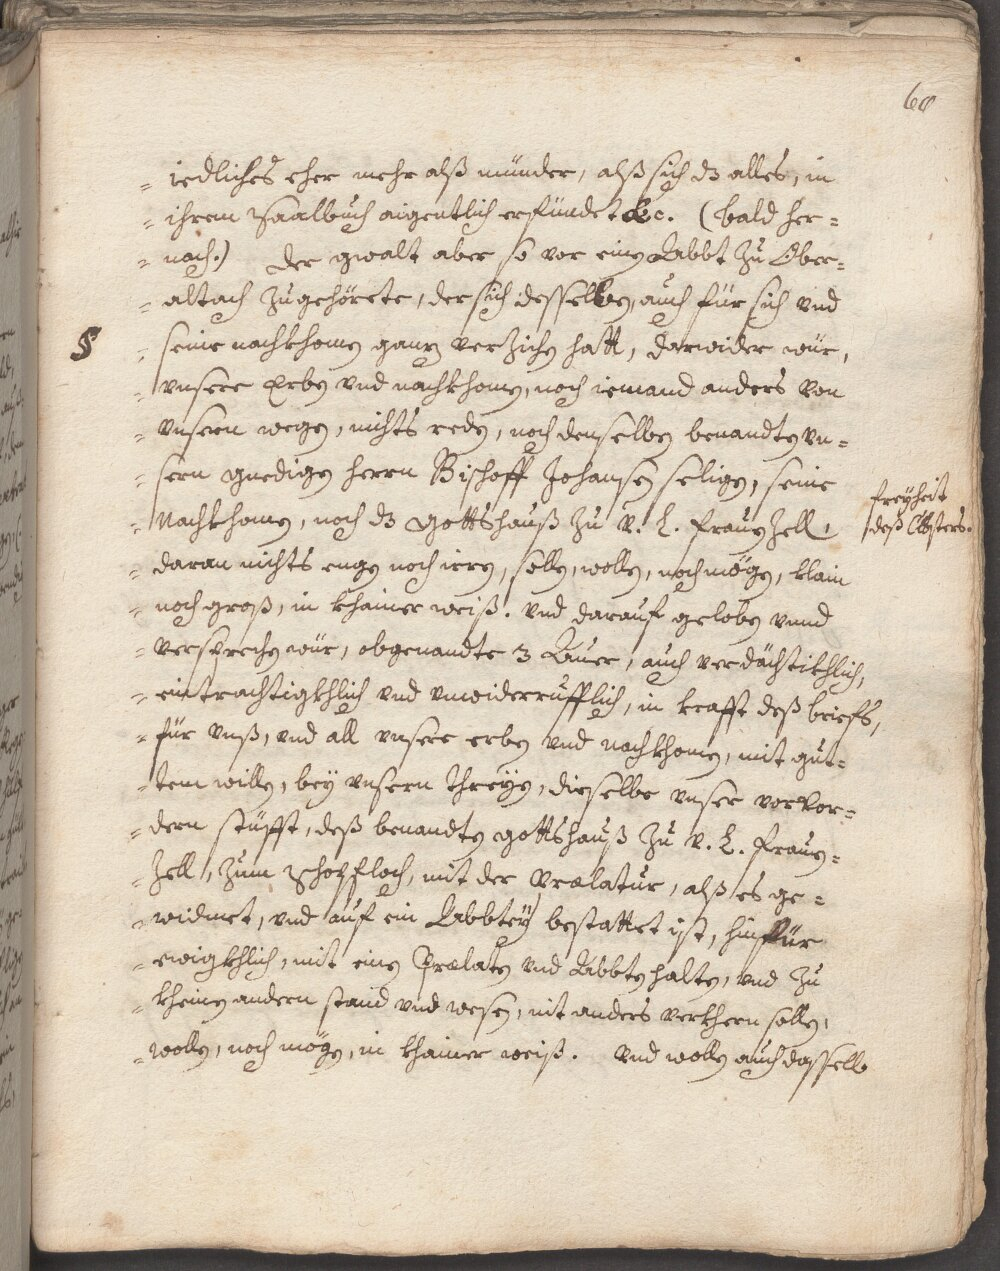 60
= iedliches eher mehr alß münder, alß sich dz alles, in
= ihrem Saalbuch aigentlich erfündet &c. (bald her=
= nach.) Der gwalt aber so vor eim Abbt zu Ober=
= altach zugehörete, der sich desselben, auch für sich vnd
§ = seine nachkhomen ganz verzichen hatt, darwider wür,
= vnsere Erben vnd nachkhomen, noch iemand anders von
= vnsern wegen, nichts reden, noch denselben benandten vn=
= sern gnedigen herrn Bischoff Johansen seligen, seine
= Nachkhomen, noch dz Gottshauß zu v. L. Frauenzell,
freyheit
deß Closters.
= daran nichts engen noch irren, sollen, wollen, noch mögen, klain
= noch groß, in khainer weiß. vnd darauf geloben vnnd
= versprechen wür, obgenandte 3 Auer, auch verdächtikhlich,
= eintrachtigkhlich vnd vnwiderrufflich, in krafft deß briefs,
= für vnß, vnd all vnsere erben vnd nachkhomen, mit gut=
= tem willen, bey vnsern threyen, dieselbe vnser vorvor=
= dern stüfft, deß benandten Gottshauß zu v. L. Frauen=
= zell, zum Schopfloch, mit der Prælatur, alß es ge=
= widmet, vnd auf ein Abbtey bestattet ist, hinfür
= ewigkhlich, mit einem Prælaten vnd Abbten halten, vnd zu
= kheinem andern stand vnd wesen, nit anders verkhern sollen,
= wollen, noch mögen, in khainer weiß. Vnd wollen auch dasselb